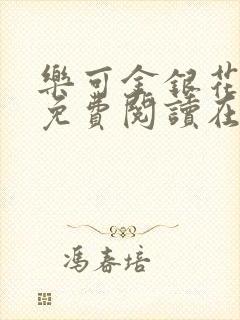 樂可金銀花
免費閱讀在
馮春培